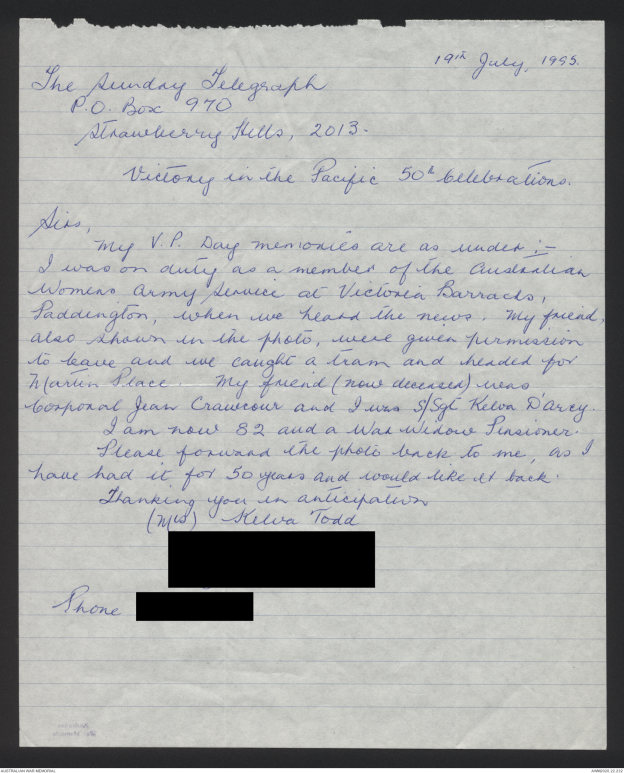 19th July, 1995.
The Sunday Telegraph
P.O. Box 970
Strawberry Hills, 2013.
Victory in the Pacific 50th Celebrations.
Sirs,
My V.P. Day memories are as under :-
I was on duty as a member of the Australian
Womens Army Service at Victoria Barracks,
Paddington, when we heard the news. My friend,
also shown in the photo, were given permission
to leave and we caught a tram and headed for
Martin Place. My friend (now deceased) was
Corporal Jean Crawcour and I was S/Sgt Kelva D'Arcy.
I am now 82 and a War Widow Pensioner.
Please forward the photo back to me, as I
have had it for 50 years and would like it back.
Thanking you in anticipation
(Mrs) Kelva Todd
Phone
AUSTRALIAN WAR MEMORIAL